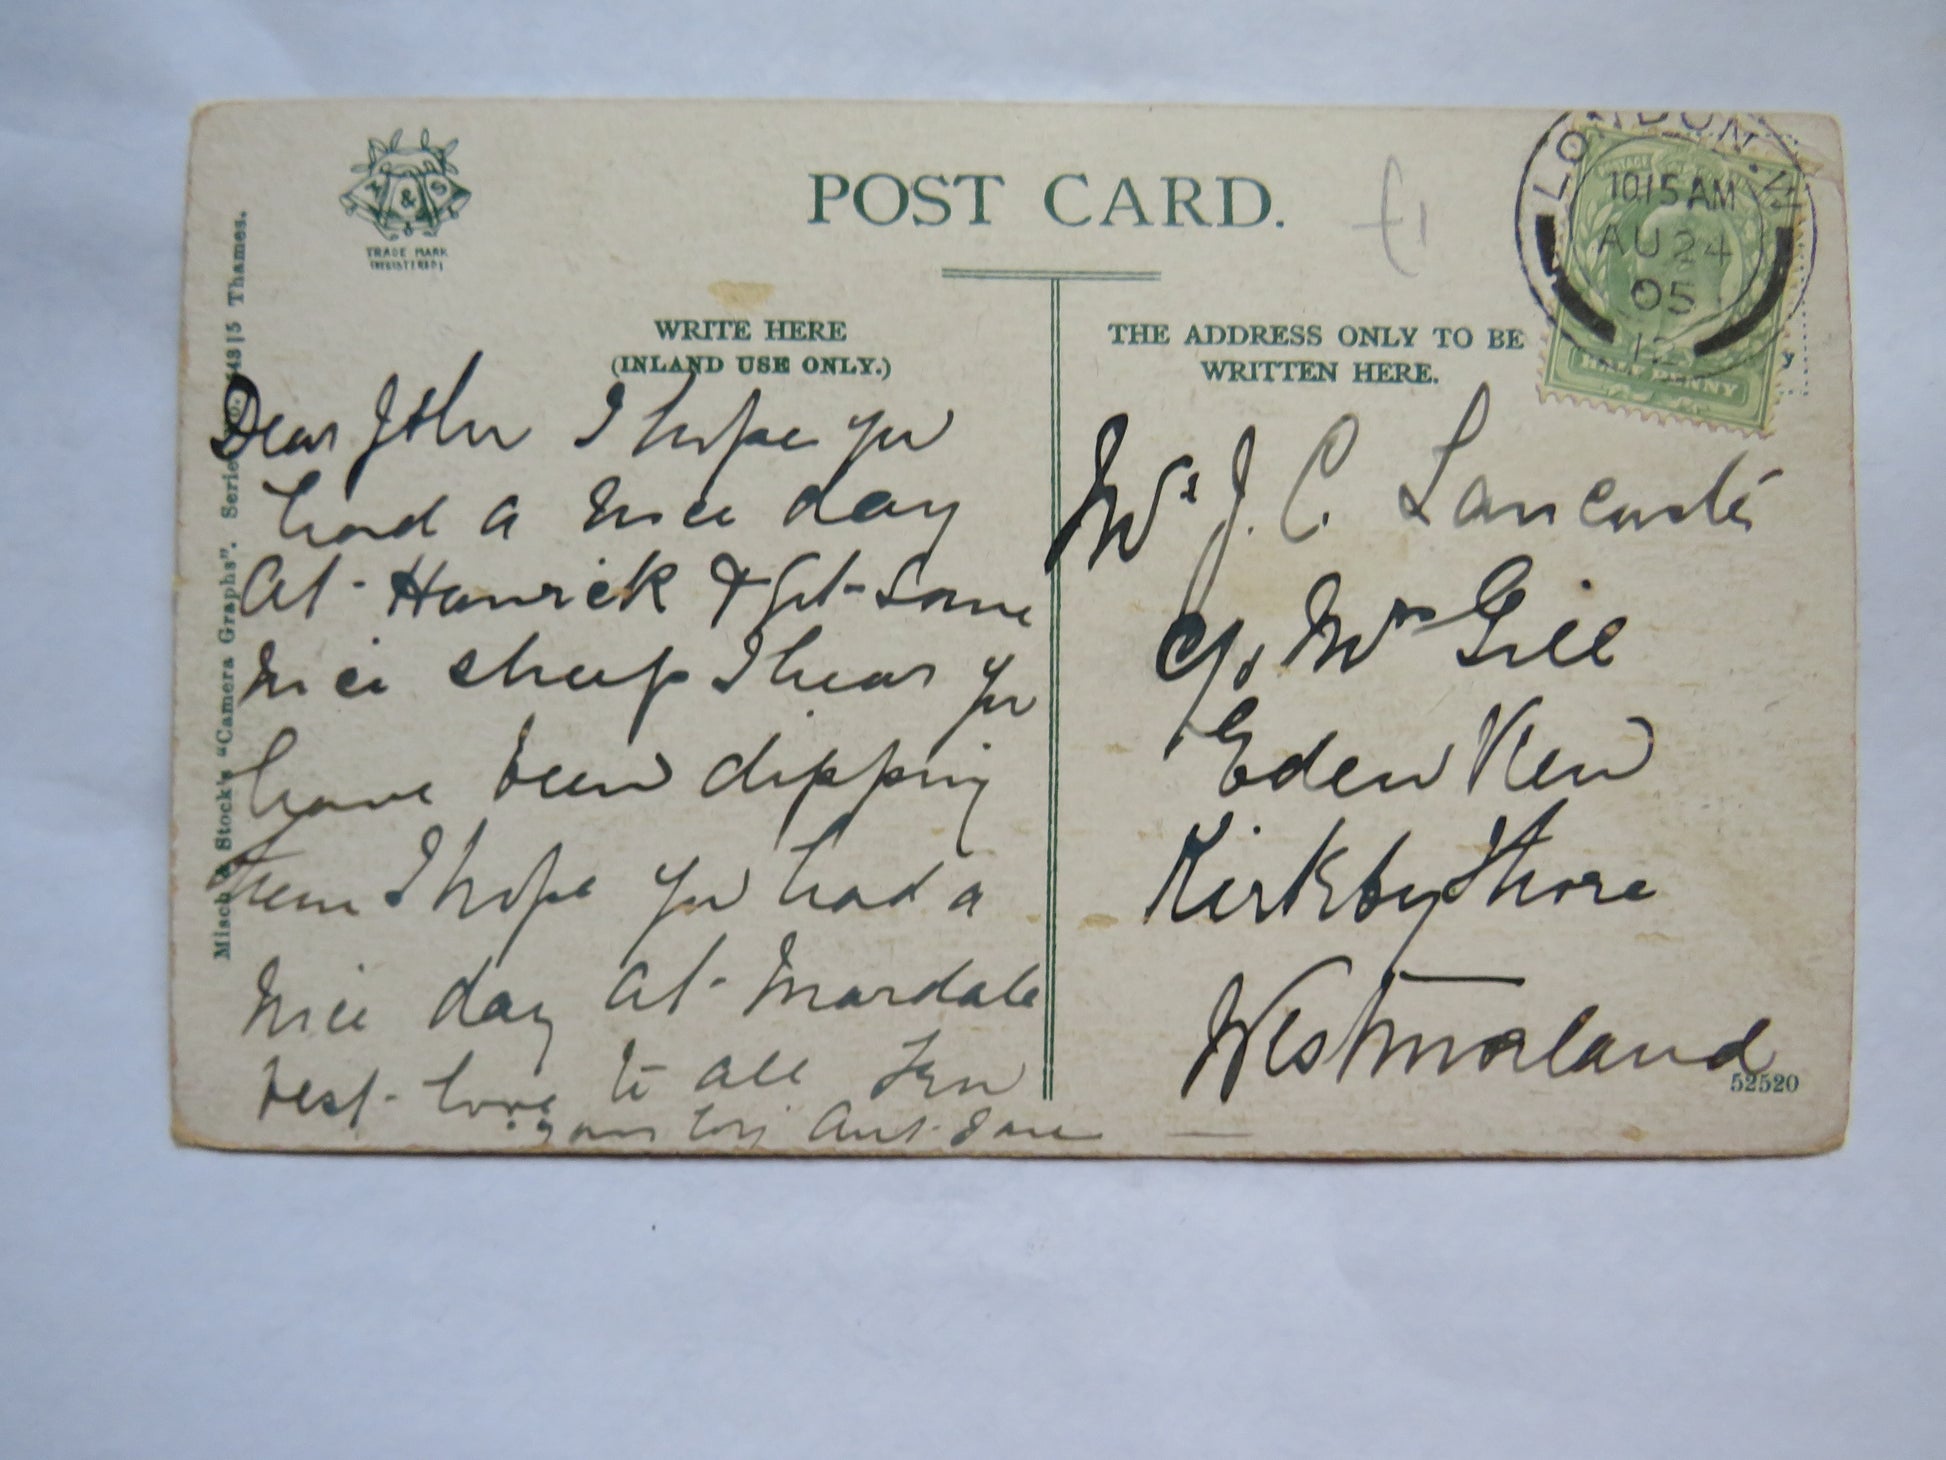 POST CARD.
M & S
TRADE MARK
(REGISTERED)
£1
LONDON. W
10.15 AM
AU 24
05
12
HALF PENNY
WRITE HERE
(INLAND USE ONLY.)
THE ADDRESS ONLY TO BE
WRITTEN HERE.
Misch & Stock's "Camera Graphs". Series 43|5 Thames.
Dear John I hope you
had a nice day
at Hawick & Got Some
nice sheep I hear you
have been dipping
them I hope you had a
nice day at Mardale
best love to all
yours Aunt Jane
Mr J. C. Lancaster
c/o Mrs Gill
Eden View
Kirkby Thore
Westmorland
52520